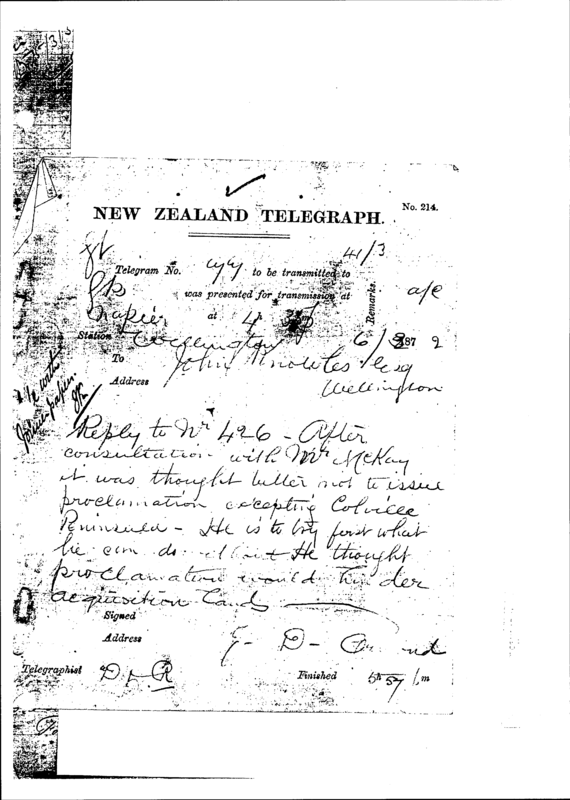 NEW ZEALAND TELEGRAPH.
No. 214.
41/3
Telegram No. to be transmitted to
was presented for transmission at
Remarks.
a/c
Napier at 4
Station Wellington 6/ 187 2
To John Knowles Esq
Address Wellington
Reply to No 426 - After
consultation with Mr McKay
it was thought better not to issue
proclamation excepting Colville
Peninsula - He is to try first what
he can do He thought
proclamation would hinder
acquisition Lands
Signed
Address
J - D - Ormond
Telegraphist D L R
Finished 57 m